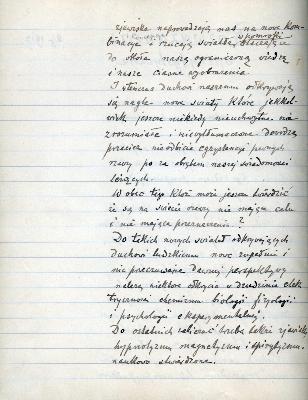 zjawiska naprowadzają nas na nowe kom-
binacje i rzucają światło w pomroki
do koła naszą ograniczoną wiedzę
i nasze ciasne wyobrażenia.
I wtenczas duchowi naszemu odkrywają
są nagle nowe światy które jakkol-
wiek jeszcze niekiedy nieuchwytne nie
zrozumiałe i niewytłumaczone dowodzą
przecież niezbicie egzystencyi pewnych
rzeczy po za obrębem naszej świadomości
leżących.
W obec tego któż może jeszcze twierdzić
że są na świecie rzeczy nie mające celu
i nie mające przeznaczenia?
Do takich nowych światów odkrywających
duchowi ludzkiemu nowe zupełnie i
nie przeczuwane dawniej perspektywy
należą niektóre odkrycia w dziedzinie elek
tryczności chemizmu biologii fizyologii
i psychologii eksperymentalnej.
Do ostatnich zaliczyć trzeba także zjawiska
hypnotyzmu magnetyzmu i spirytyzmu
naukowo stwierdzone.